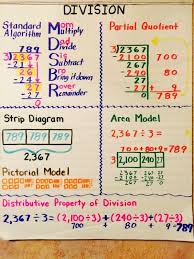 DIVISION
Standard Algorithm
Mom
Dad
Sis
Bro
Rover
Multiply
Divide
Subtract
Bring it down
Remainder
789
3 2367
-21
26
-24
27
-27
0
Partial Quotient
3 2,367
-2,100 700
267
-240 80
27
-27 9
0 789
Strip Diagram
789 789 789
2,367
Pictorial Model
Area Model
2,367÷3=
700 + 80 + 9
3 2,100 240 27
Distributive Property of Division
2,367÷3=(2,100÷3)+(240÷3)+(27÷3)
700 + 80 + 9=789